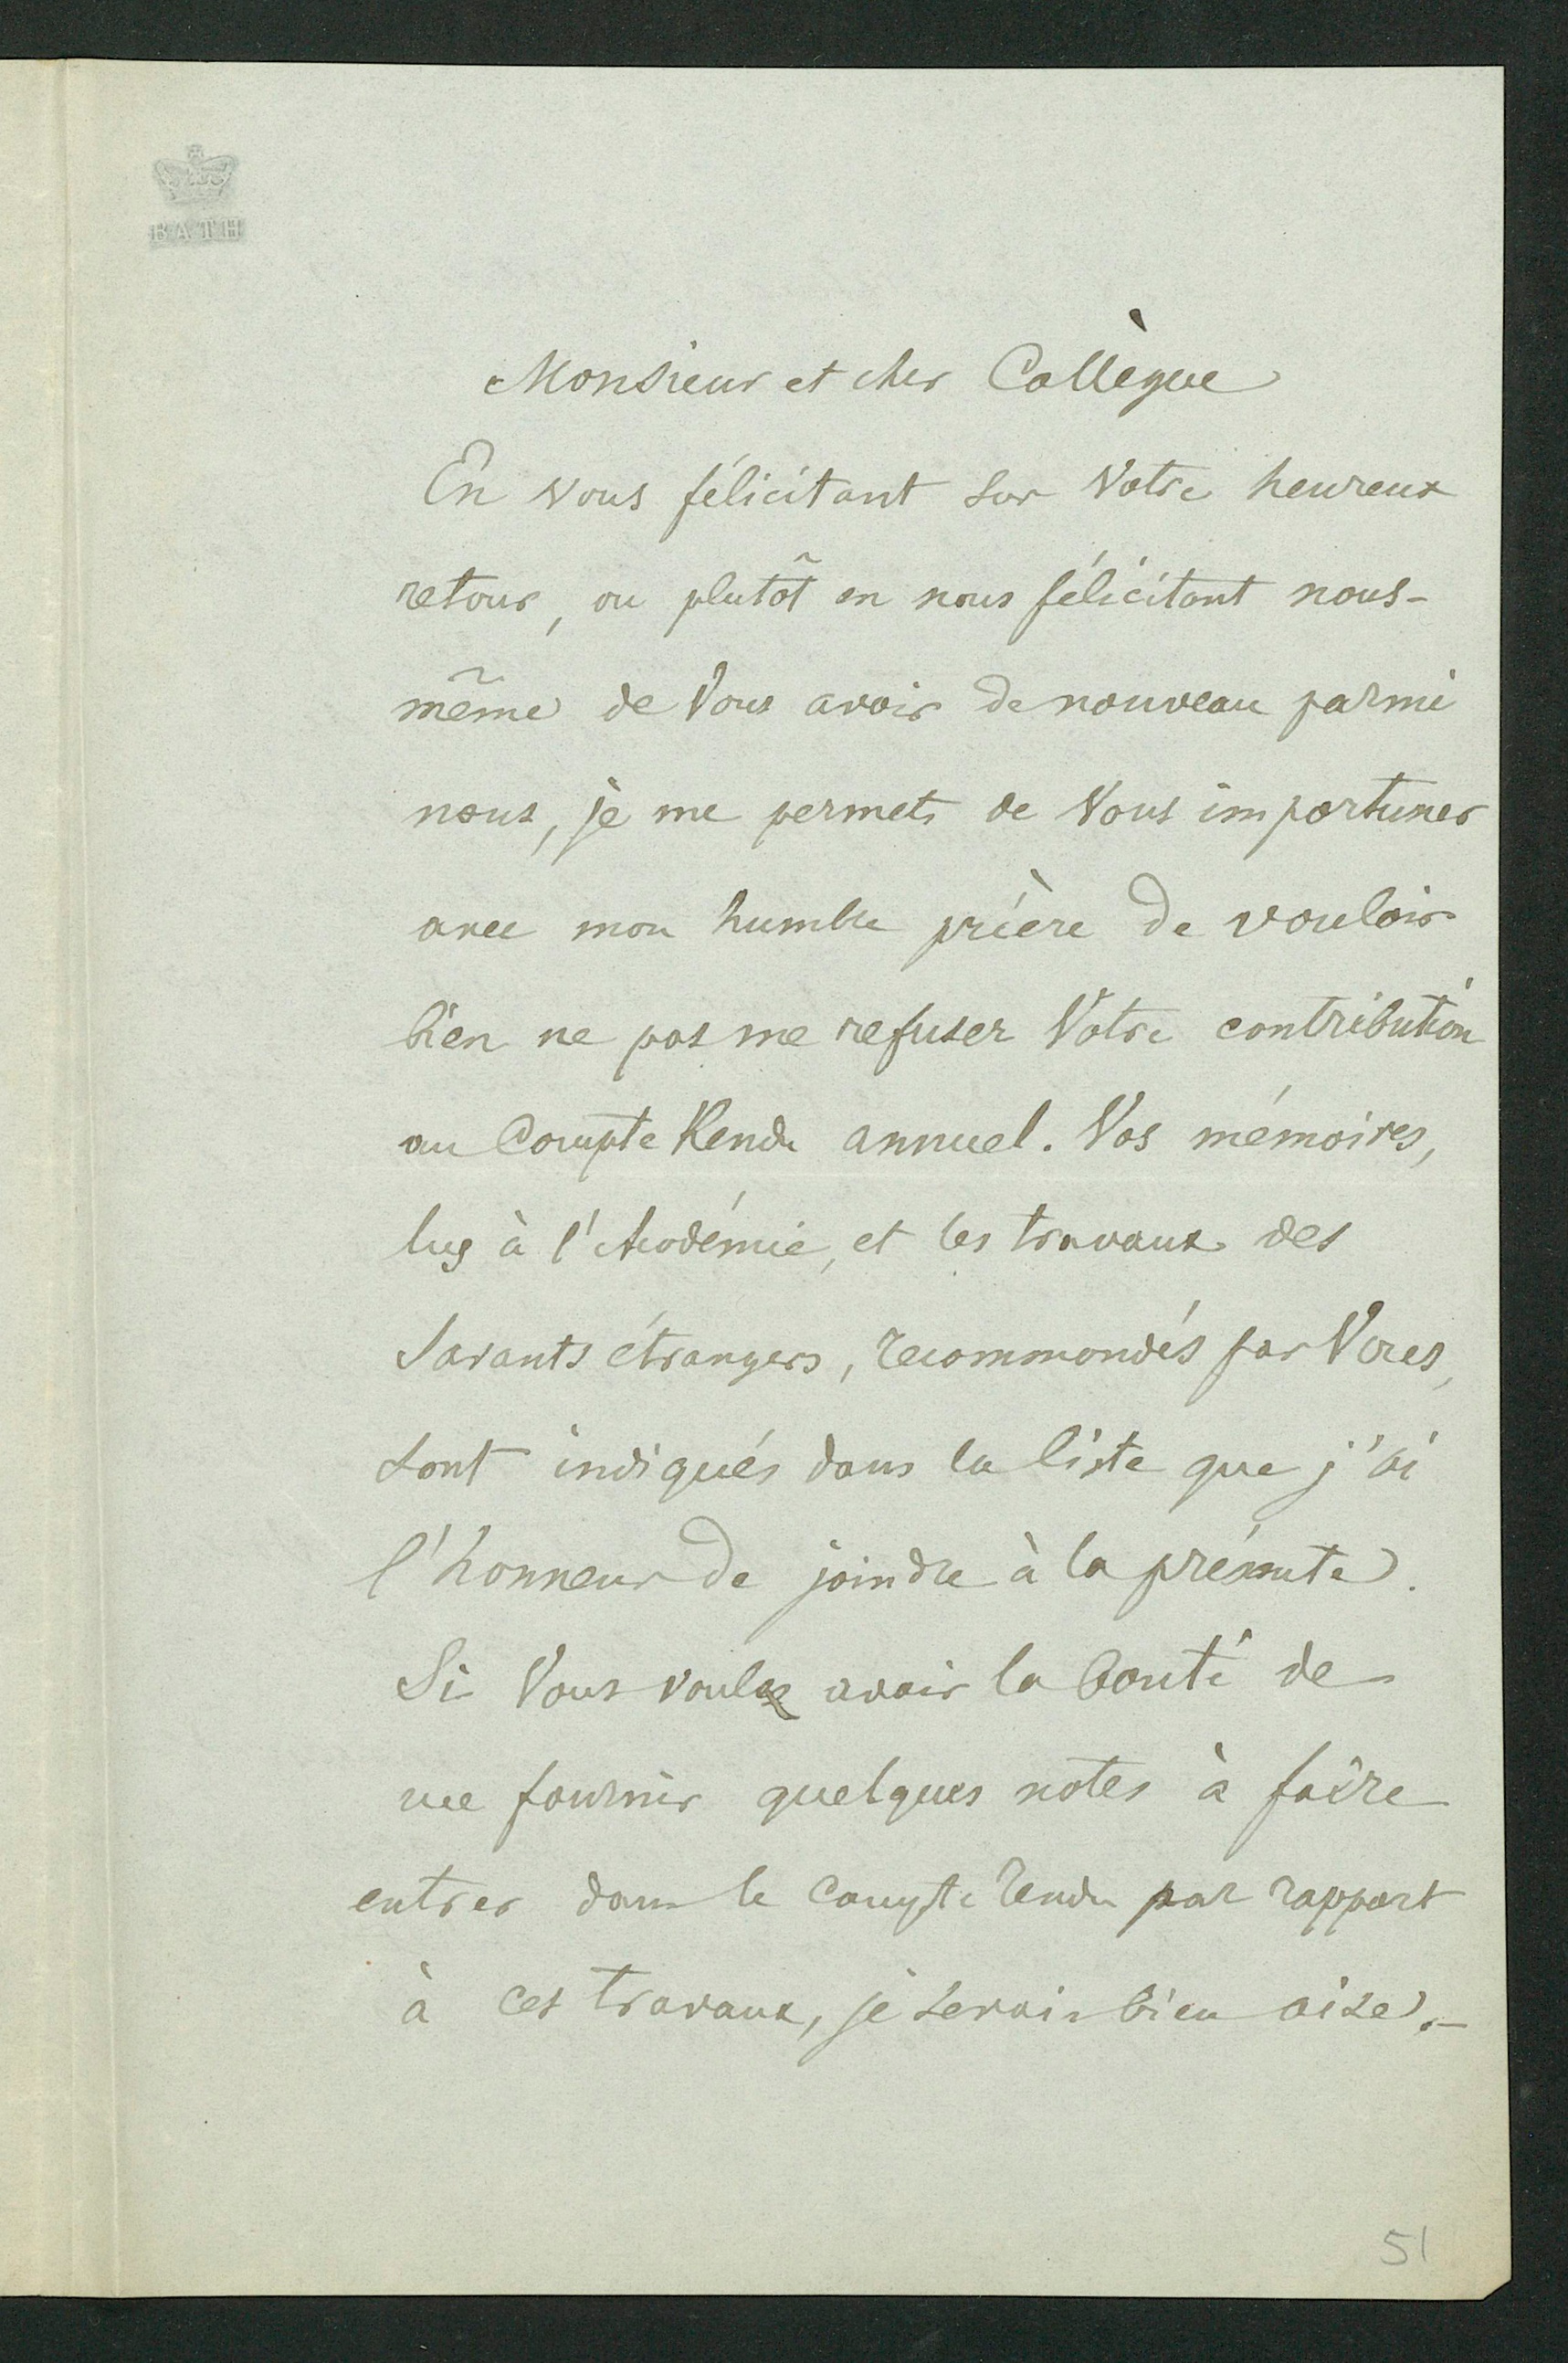 BATH
Monsieur et cher Collègue
En vous félicitant sur Votre heureux
retour, ou plutôt en nous félicitant nous-
même de Vous avoir de nouveau parmi
nous, je me permets de Vous importuner
avec mon humble prière de vouloir
bien ne pas me refuser Votre contribution
au Compte Rendu annuel. Vos mémoires,
lus à l'Académie, et les travaux des
Savants étrangers, recommandés par Vous,
sont indiqués dans la liste que j'ai
l'honneur de joindre à la présente.
Si Vous voulez avoir la bonté de
me fournir quelques notes à faire
entrer dans le Compte rendu par rapport
à ces travaux, je serais bien aise.—
51